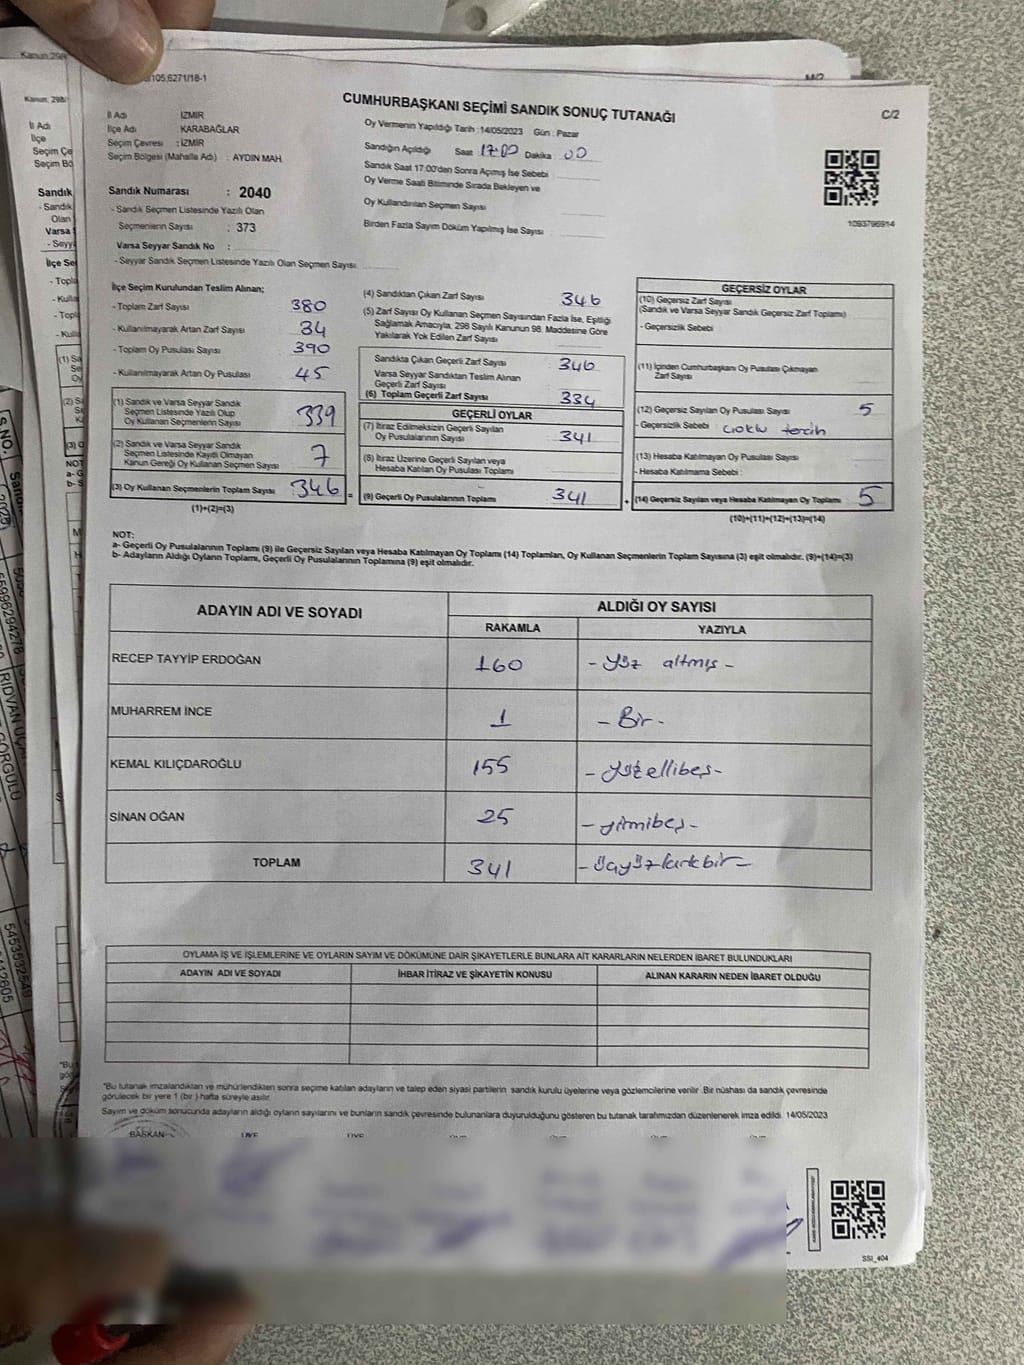 Kanun 298
105.6271/18-1
CUMHURBAŞKANI SEÇİMİ SANDIK SONUÇ TUTANAĞI
C/2
İl Adı İZMİR
İlçe Adı KARABAĞLAR
Seçim Çevresi : İZMİR
Seçim Bölgesi (Mahalle Adı) : AYDIN MAH.
Sandık Numarası : 2040
- Sandık Seçmen Listesinde Yazılı Olan
Seçmenlerin Sayısı : 373
Varsa Seyyar Sandık No :
- Seyyar Sandık Seçmen Listesinde Yazılı Olan Seçmen Sayısı
Oy Vermenin Yapıldığı Tarih :14/05/2023 Gün : Pazar
Sandığın Açıldığı Saat 17:00 Dakika : 00
Sandık Saat 17:00'den Sonra Açmış İse Sebebi
Oy Verme Saati Bitiminde Sırada Bekleyen ve
Oy Kullandırılan Seçmen Sayısı
Birden Fazla Sayım Döküm Yapılmış İse Sayısı
1093796914
İlçe Seçim Kurulundan Teslim Alınan;
- Toplam Zarf Sayısı 380
- Kullanılmayarak Artan Zarf Sayısı 34
- Toplam Oy Pusulası Sayısı 390
- Kullanılmayarak Artan Oy Pusulası 45
(1) Sandık ve Varsa Seyyar Sandık
Seçmen Listesinde Yazılı Olup
Oy Kullanan Seçmenlerin Sayısı 339
(2) Sandık ve Varsa Seyyar Sandık
Seçmen Listesinde Kayıtlı Olmayan
Kanun Gereği Oy Kullanan Seçmen Sayısı 7
(3) Oy Kullanan Seçmenlerin Toplam Sayısı 346 =
(1)+(2)=(3)
(4) Sandıktan Çıkan Zarf Sayısı 346
(5) Zarf Sayısı Oy Kullanan Seçmen Sayısından Fazla İse, Eşitliği
Sağlamak Amacıyla, 298 Sayılı Kanunun 98. Maddesine Göre
Yakılarak Yok Edilen Zarf Sayısı
Sandıkta Çıkan Geçerli Zarf Sayısı 346
Varsa Seyyar Sandıktan Teslim Alınan
Geçerli Zarf Sayısı
(6) Toplam Geçerli Zarf Sayısı 334
GEÇERLİ OYLAR
(7) İtiraz Edilmeksizin Geçerli Sayılan
Oy Pusulalarının Sayısı 341
(8) İtiraz Üzerine Geçerli Sayılan veya
Hesaba Katılan Oy Pusulası Toplamı -
(9) Geçerli Oy Pusulalarının Toplamı 341 +
GEÇERSİZ OYLAR
(10) Geçersiz Zarf Sayısı
(Sandık ve Varsa Seyyar Sandık Geçersiz Zarf Toplamı)
- Geçersizlik Sebebi
(11) İçinden Cumhurbaşkanı Oy Pusulası Çıkmayan
Zarf Sayısı
(12) Geçersiz Sayılan Oy Pusulası Sayısı 5
- Geçersizlik Sebebi çoklu tercih
(13) Hesaba Katılmayan Oy Pusulası Sayısı
- Hesaba Katılmama Sebebi
(14) Geçersiz Sayılan veya Hesaba Katılmayan Oy Toplamı 5
(10)+(11)+(12)+(13)=(14)
NOT:
a- Geçerli Oy Pusulalarının Toplamı (9) ile Geçersiz Sayılan veya Hesaba Katılmayan Oy Toplamı (14) Toplamları, Oy Kullanan Seçmenlerin Toplam Sayısına (3) eşit olmalıdır. (9)+(14)=(3)
b- Adayların Aldığı Oyların Toplamı, Geçerli Oy Pusulalarının Toplamına (9) eşit olmalıdır.
ADAYIN ADI VE SOYADI
ALDIĞI OY SAYISI
RAKAMLA YAZIYLA
RECEP TAYYİP ERDOĞAN 160 - yüz altmış -
MUHARREM İNCE 1 - Bir -
KEMAL KILIÇDAROĞLU 155 - yüzellibeş -
SİNAN OĞAN 25 - yirmibeş -
TOPLAM 341 - üçyüzkırkbir -
OYLAMA İŞ VE İŞLEMLERİNE VE OYLARIN SAYIM VE DÖKÜMÜNE DAİR ŞİKAYETLERLE BUNLARA AİT KARARLARIN NELERDEN İBARET BULUNDUKLARI
ADAYIN ADI VE SOYADI İHBAR İTİRAZ VE ŞİKAYETİN KONUSU ALINAN KARARIN NEDEN İBARET OLDUĞU
"Bu tutanak imzalandıktan ve mühürlendikten sonra seçime katılan adayların ve talep eden siyasi partilerin sandık kurulu üyelerine veya gözlemcilerine verilir. Bir nüshası da sandık çevresinde
görülecek bir yere 1 (bir) hafta süreyle asılır.
Sayım ve döküm sonucunda adayların aldığı oyların sayılarını ve bunların sandık çevresinde bulunanlara duyurulduğunu gösteren bu tutanak tarafımızdan düzenlenerek imza edildi. 14/05/2023
BAŞKAN ÜYE ÜYE
SSI_404